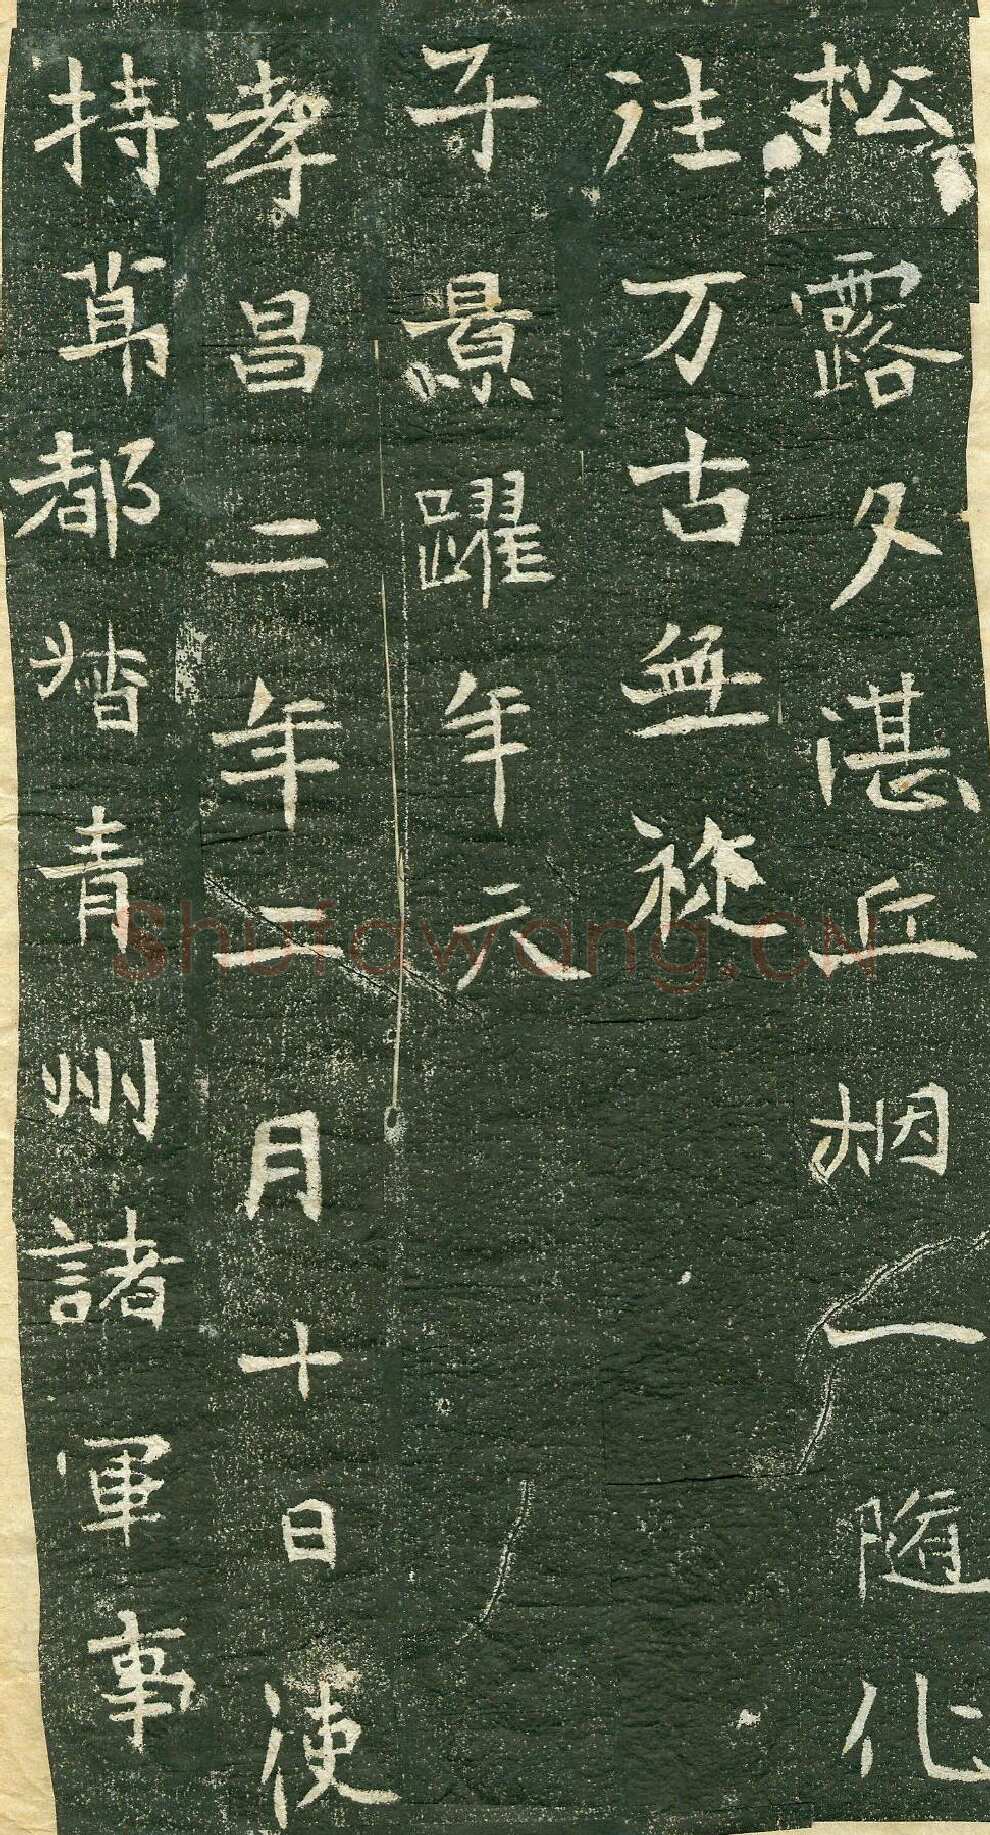 松露夕湛丘烟一随化
往万古無從
子景躍年元
孝昌二年二月十日使
持節都督青州諸軍事
Shufawang.CN